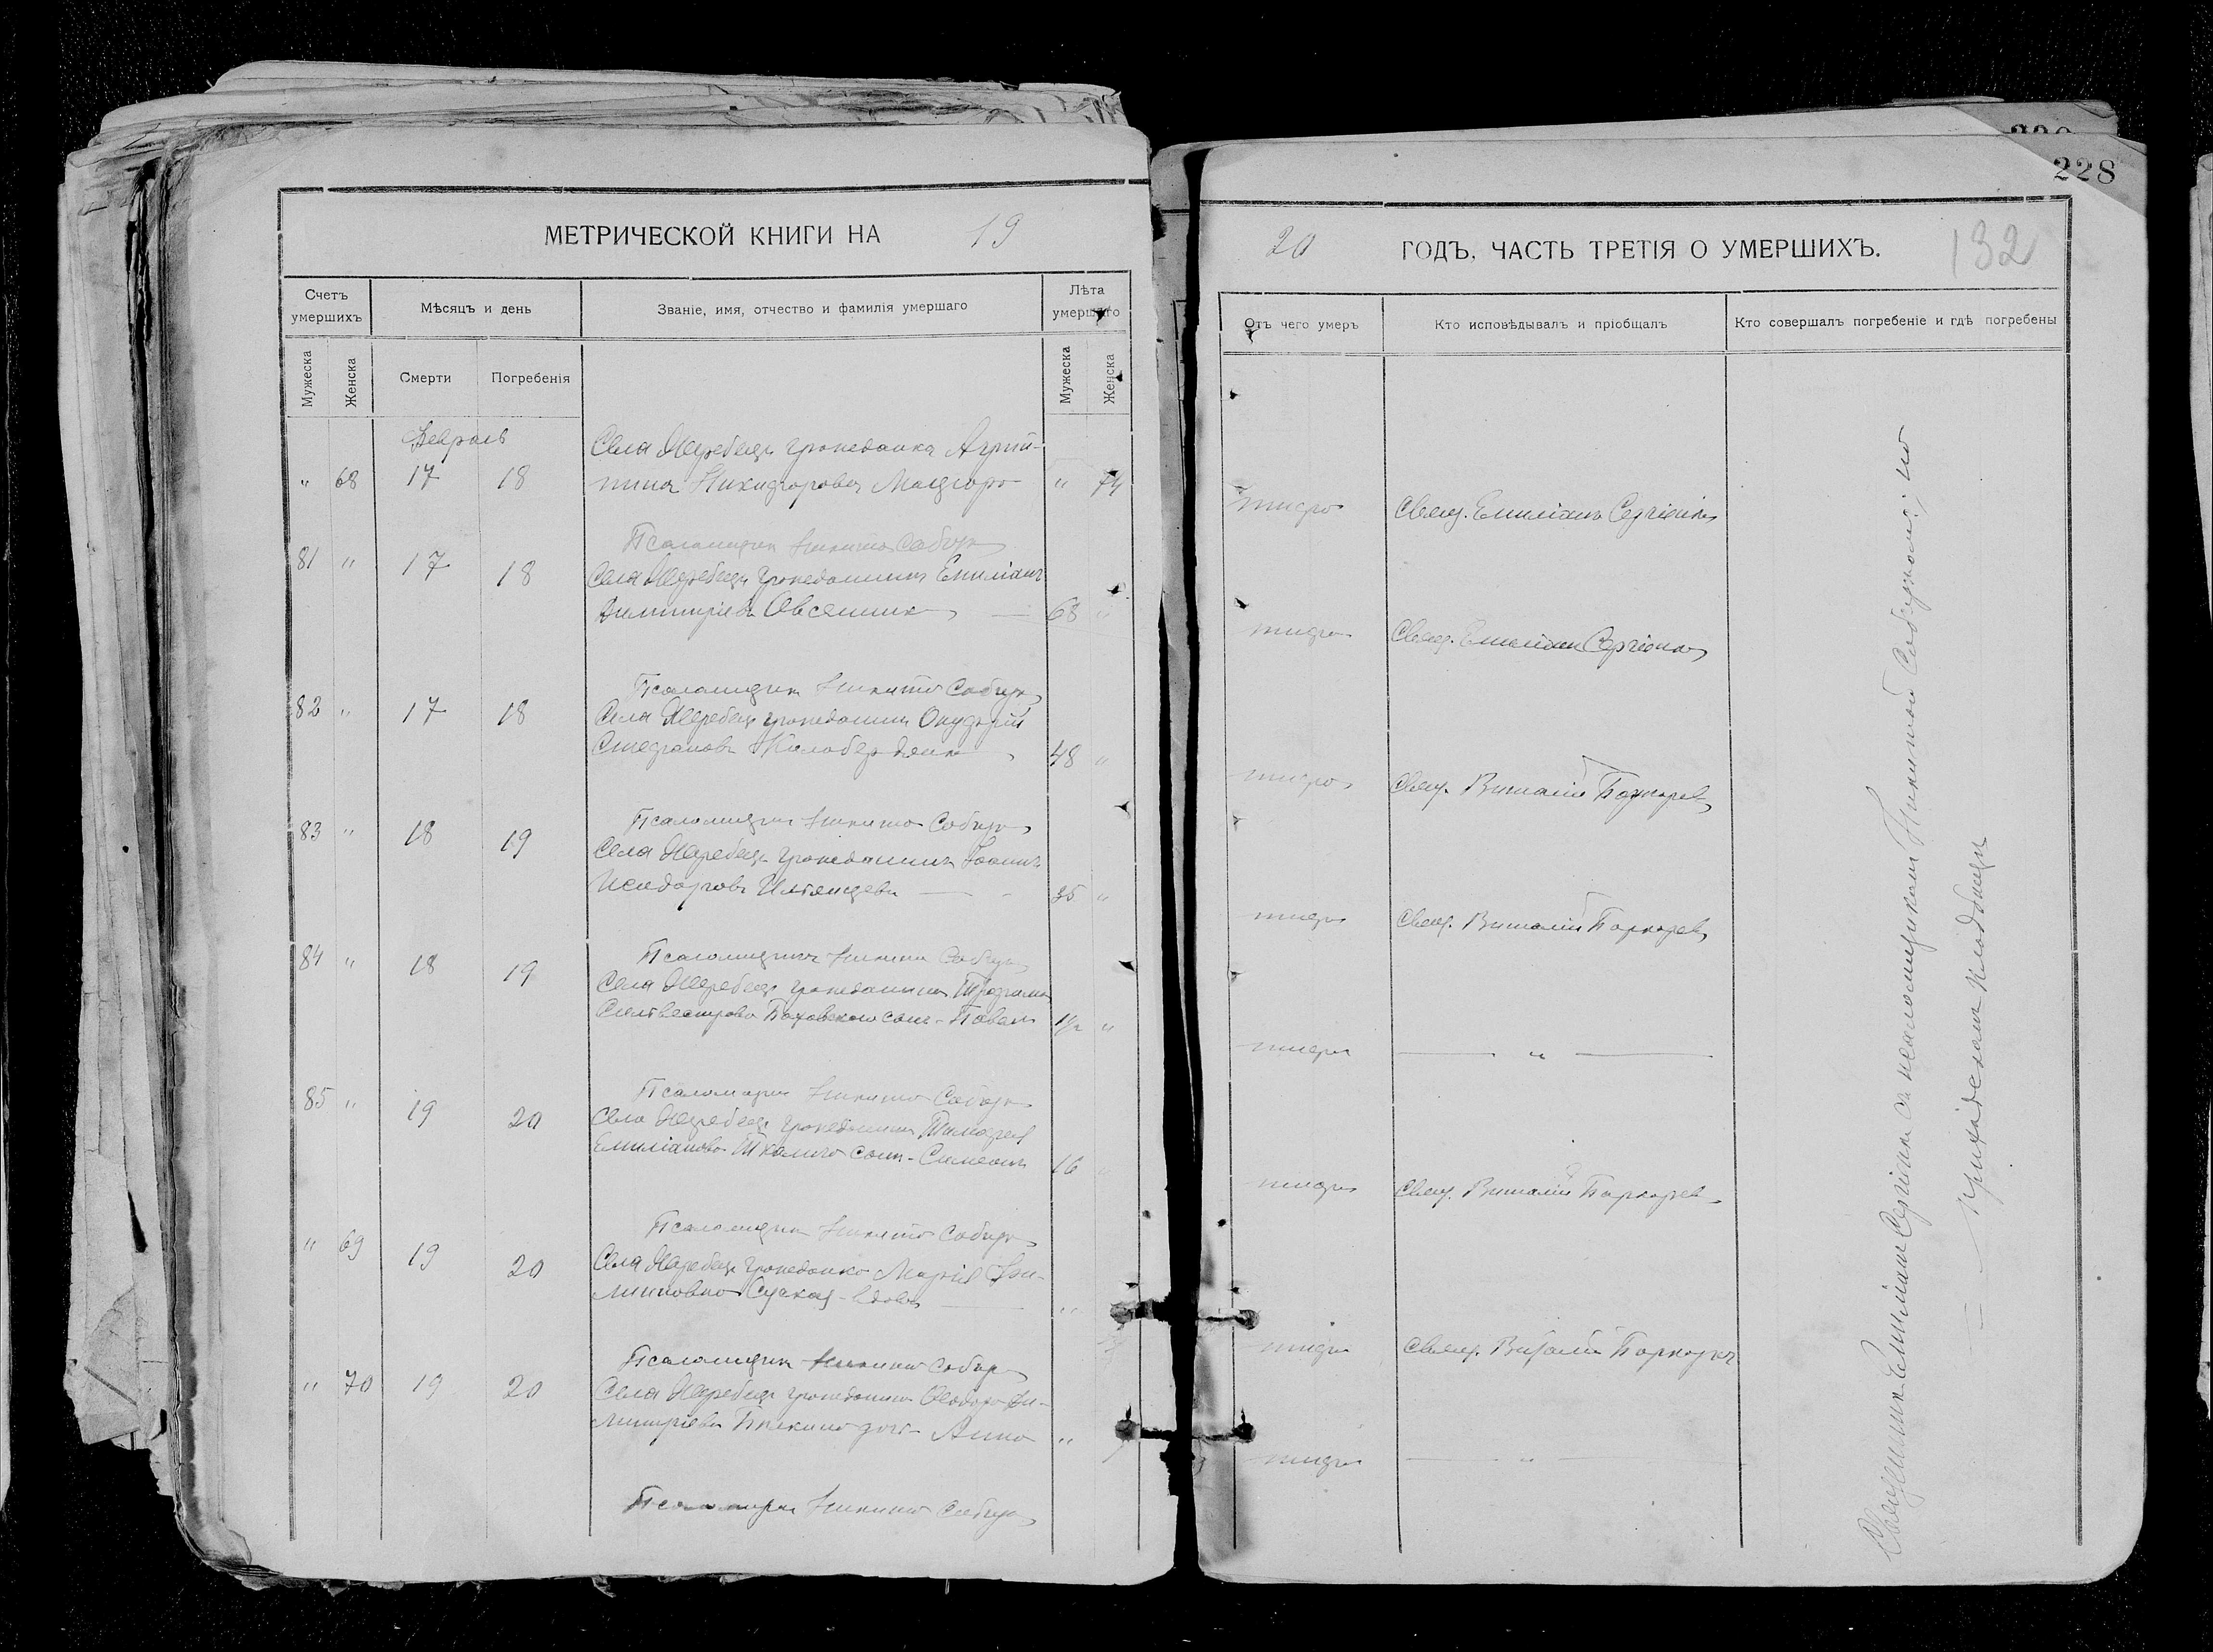 228
МЕТРИЧЕСКОЙ КНИГИ НА 19
20 ГОДЪ, ЧАСТЬ ТРЕТІЯ О УМЕРШИХЪ.
132
Счетъ умершихъ
Мѣсяцъ и день
Званіе, имя, отчество и фамилія умершаго
Лѣта умершаго
Отъ чего умеръ
Кто исповѣдывалъ и пріобщалъ
Кто совершалъ погребеніе и гдѣ погребены
Мужеска
Женска
Смерти
Погребенія
Мужеска
Женска
Февраль
Села Жеребецъ гражданка Агрип-
" 68 17 18 пина Никифорова " 74
тифа Свящ. Емиліанъ Сергіенко
Псаломщикъ Никита Собчук
81 " 17 18 Села Жеребецъ гражданинъ Емиліанъ
Димитріевъ Овсянник 68 "
тифа Свящ. Емиліанъ Сергіенко
Псаломщикъ Никита Собчук
82 " 17 18 Села Жеребецъ гражданинъ Онуфрій
Стефановъ 48 "
тифа Свящ. Виталій
Псаломщикъ Никита Собчук
83 " 18 19 Села Жеребецъ гражданинъ Іоаннъ
35 "
тифа Свящ. Виталій
Псаломщикъ Никита Собчук
84 " 18 19 Села Жеребецъ гражданина Трофима
Сильвестрова сынъ - Павелъ 1/2 "
тифа — " —
Псаломщикъ Никита Собчук
85 " 19 20 Села Жеребецъ гражданина Тимофея
Емиліанова сынъ - Симеонъ 16 "
тифа Свящ. Виталій
Псаломщикъ Никита Собчук
" 69 19 20 Села Жеребецъ гражданка Марія
- вдова "
тифа Свящ. Виталій
Псаломщикъ Никита Собчук
" 70 19 20 Села Жеребецъ гражданина Ѳеодора Ди-
митріева дочь Анна "
тифа — " —
Псаломщикъ Никита Собчук
Священникъ Емиліанъ Сергіенко съ псаломщикомъ Никитой Собчукомъ; на
приходскомъ кладбищѣ